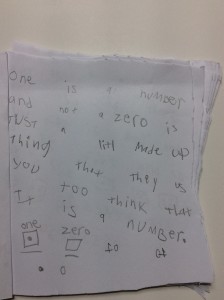 one is a number
and not a zero is
JUST a litl made up
thing that they us
you too think that
It is a number.
one zero
• 0 10